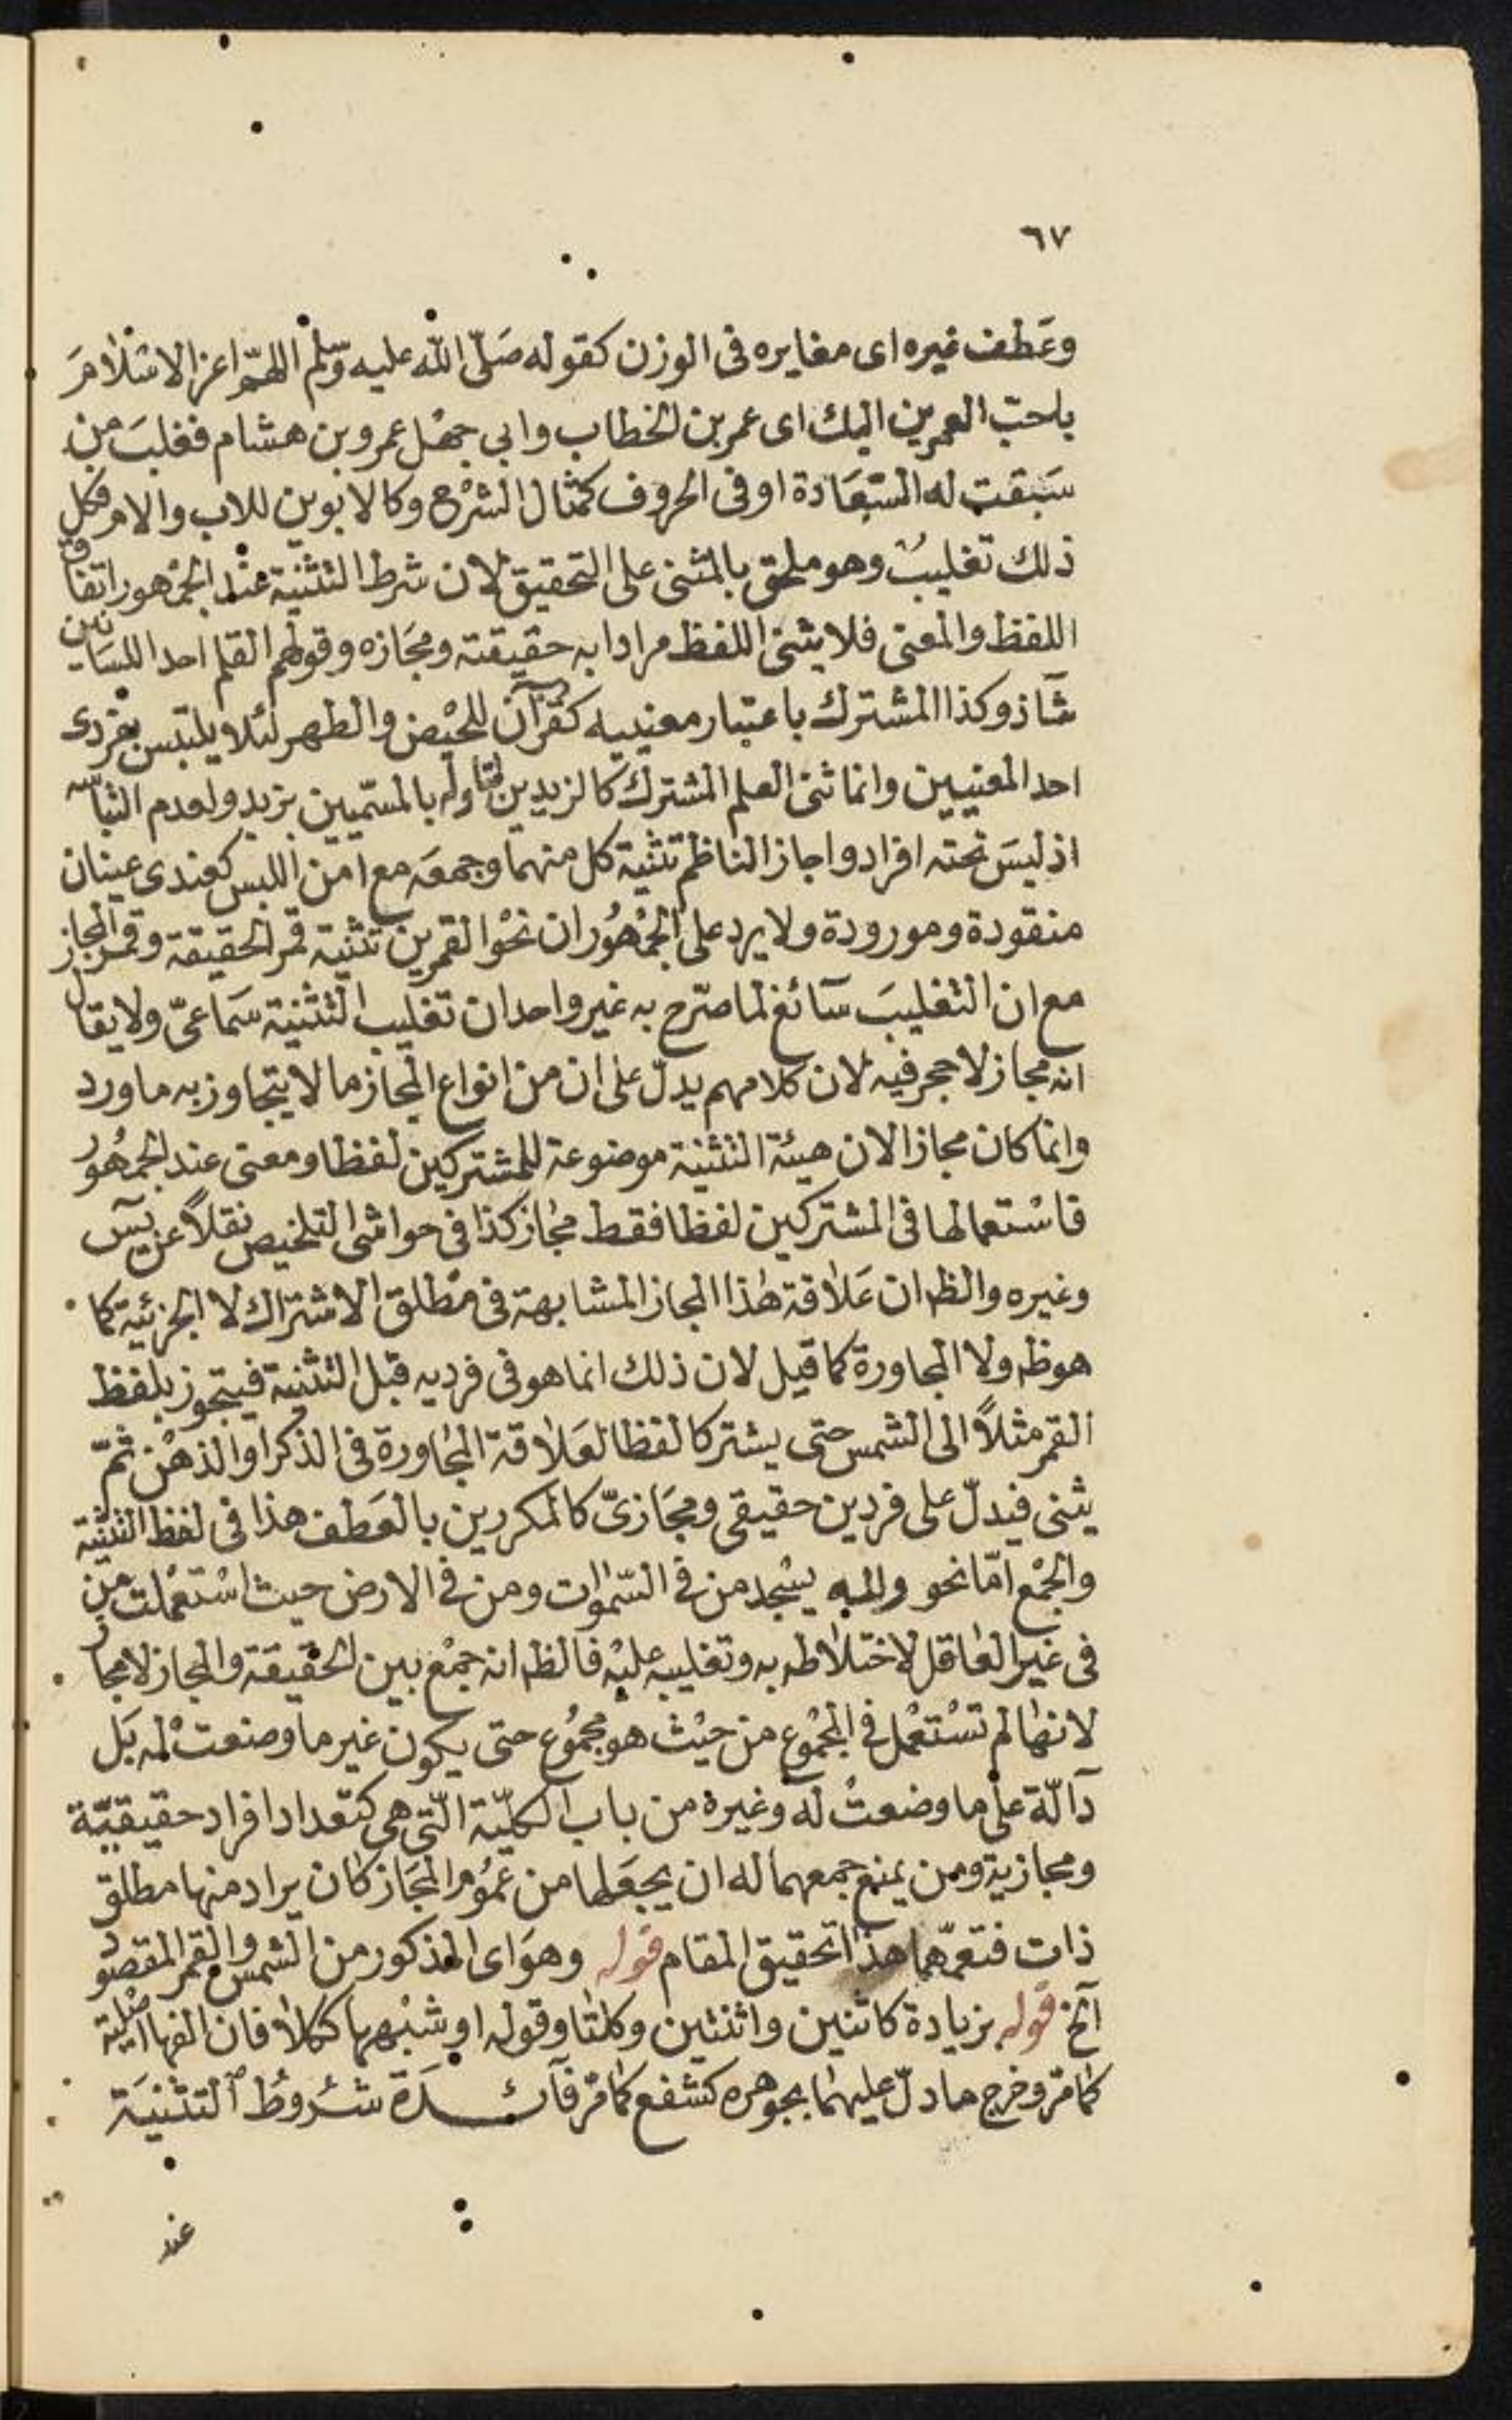 ٦٧
وعَطف غيره اى مغايره فى الوزن كقوله صَلّى الله عليه وسلّم اللهمّ اعز الاسْلامَ
باحبّ العمرين اليك اى عمر بن الخطاب وابي جهْل عمرو بن هشام فغلبَ من
سَبقت له السّعَادة او فى الحروف كمثال الشرْح وكالابوين للاب والام فكل
ذلك تغليبٌ وهو ملحق بالمثنى على التحقيق لان شرط التثنية عنْد الجمْهور اتفاق
اللفظ والمعنى فلا يثنى اللفظ مرادا به حقيقته ومجَازه وقولهم القلم احد اللسَانين
شاذ وكذا المشترك باعتبار معنييه كقرآن للحيْض والطهر لئلا يلتبس بفردى
احد المعنيين وانما ثنى العلم المشترك كالزيدين لتاوله بالمسمّيين بزيد ولعدم التباسه
اذ ليسَ تحته افراد واجاز الناظم تثنية كل منهما وجمعَه مع امن اللبس كعندى عينان
منقودة ومورودة ولا يرد على الجمْهُور ان نحْو القمرين تثنية قمر الحقيقة وقمر المجاز
مع ان التغليبَ سآئغ لما صرّح به غير واحد ان تغليب التثنية سَماعىّ ولا يقال
انه مجاز لا حجر فيه لان كلامهم يدلّ على ان من انواع المجاز ما لا يتجاوز به ما ورد
وانما كان مجازا لان هيئة التثنية موضوعة للمشتركين لفظا ومعنى عند الجمهُور
فاسْتعمالها فى المشتركين لفظا فقط مجاز كذا فى حواشى التلخيص نقلاً عن يسٓ
وغيره والظ ان عَلاقة هٰذا المجاز المشابهة فى مطلق الاشتراك لا الجزئية كما
هو ظ ولا المجاورة كما قيل لان ذلك انما هو فى فرديه قبل التثنية فيتجوز بلفظ
القمر مثلاً الى الشمس حتى يشتركا لفظا لعَلاقة المجاورة فى الذكر او الذهْن ثمّ
يثنى فيدلّ على فردين حقيقى ومجَازىّ كالمكررين بالعَطف هذا فى لفظ التثنية
والجمْع امّا نحو ولله يسْجد من فى السّموات ومن فى الارض حيث اسْتعْملت من
فى غير العاقل لاختلاطه به وتغليبه عليْه فالظ انه جمْع بين الحقيقة والمجاز لا مجاز
لانها لم تسْتعْمل فى المجْموع من حيْث هو مجمُوع حتى يكون غير ما وضعت له بَل
دآلّة على ما وضعتْ له وغيره من باب الكليّة الّتى هى كتعداد افراد حقيقيّة
ومجازية ومن يمنع جمعهما له ان يجعَلها من عمُوم المجَاز كان يراد منها مطلق
ذات فتعمّهما هذا تحقيق المقام قوله وهوَ اى المذكور من الشمس والقمر المقصود
آلخ قوله بزيادة كاثنين واثنتين وكلتا وقوله او شبْههما ككلا فان الفها اصْلية
كما مرّ وخرج ما دلّ عليهما بجوهره كشفع كما مرّ فآئــدَة شرُوطُ التثنيَة
عند